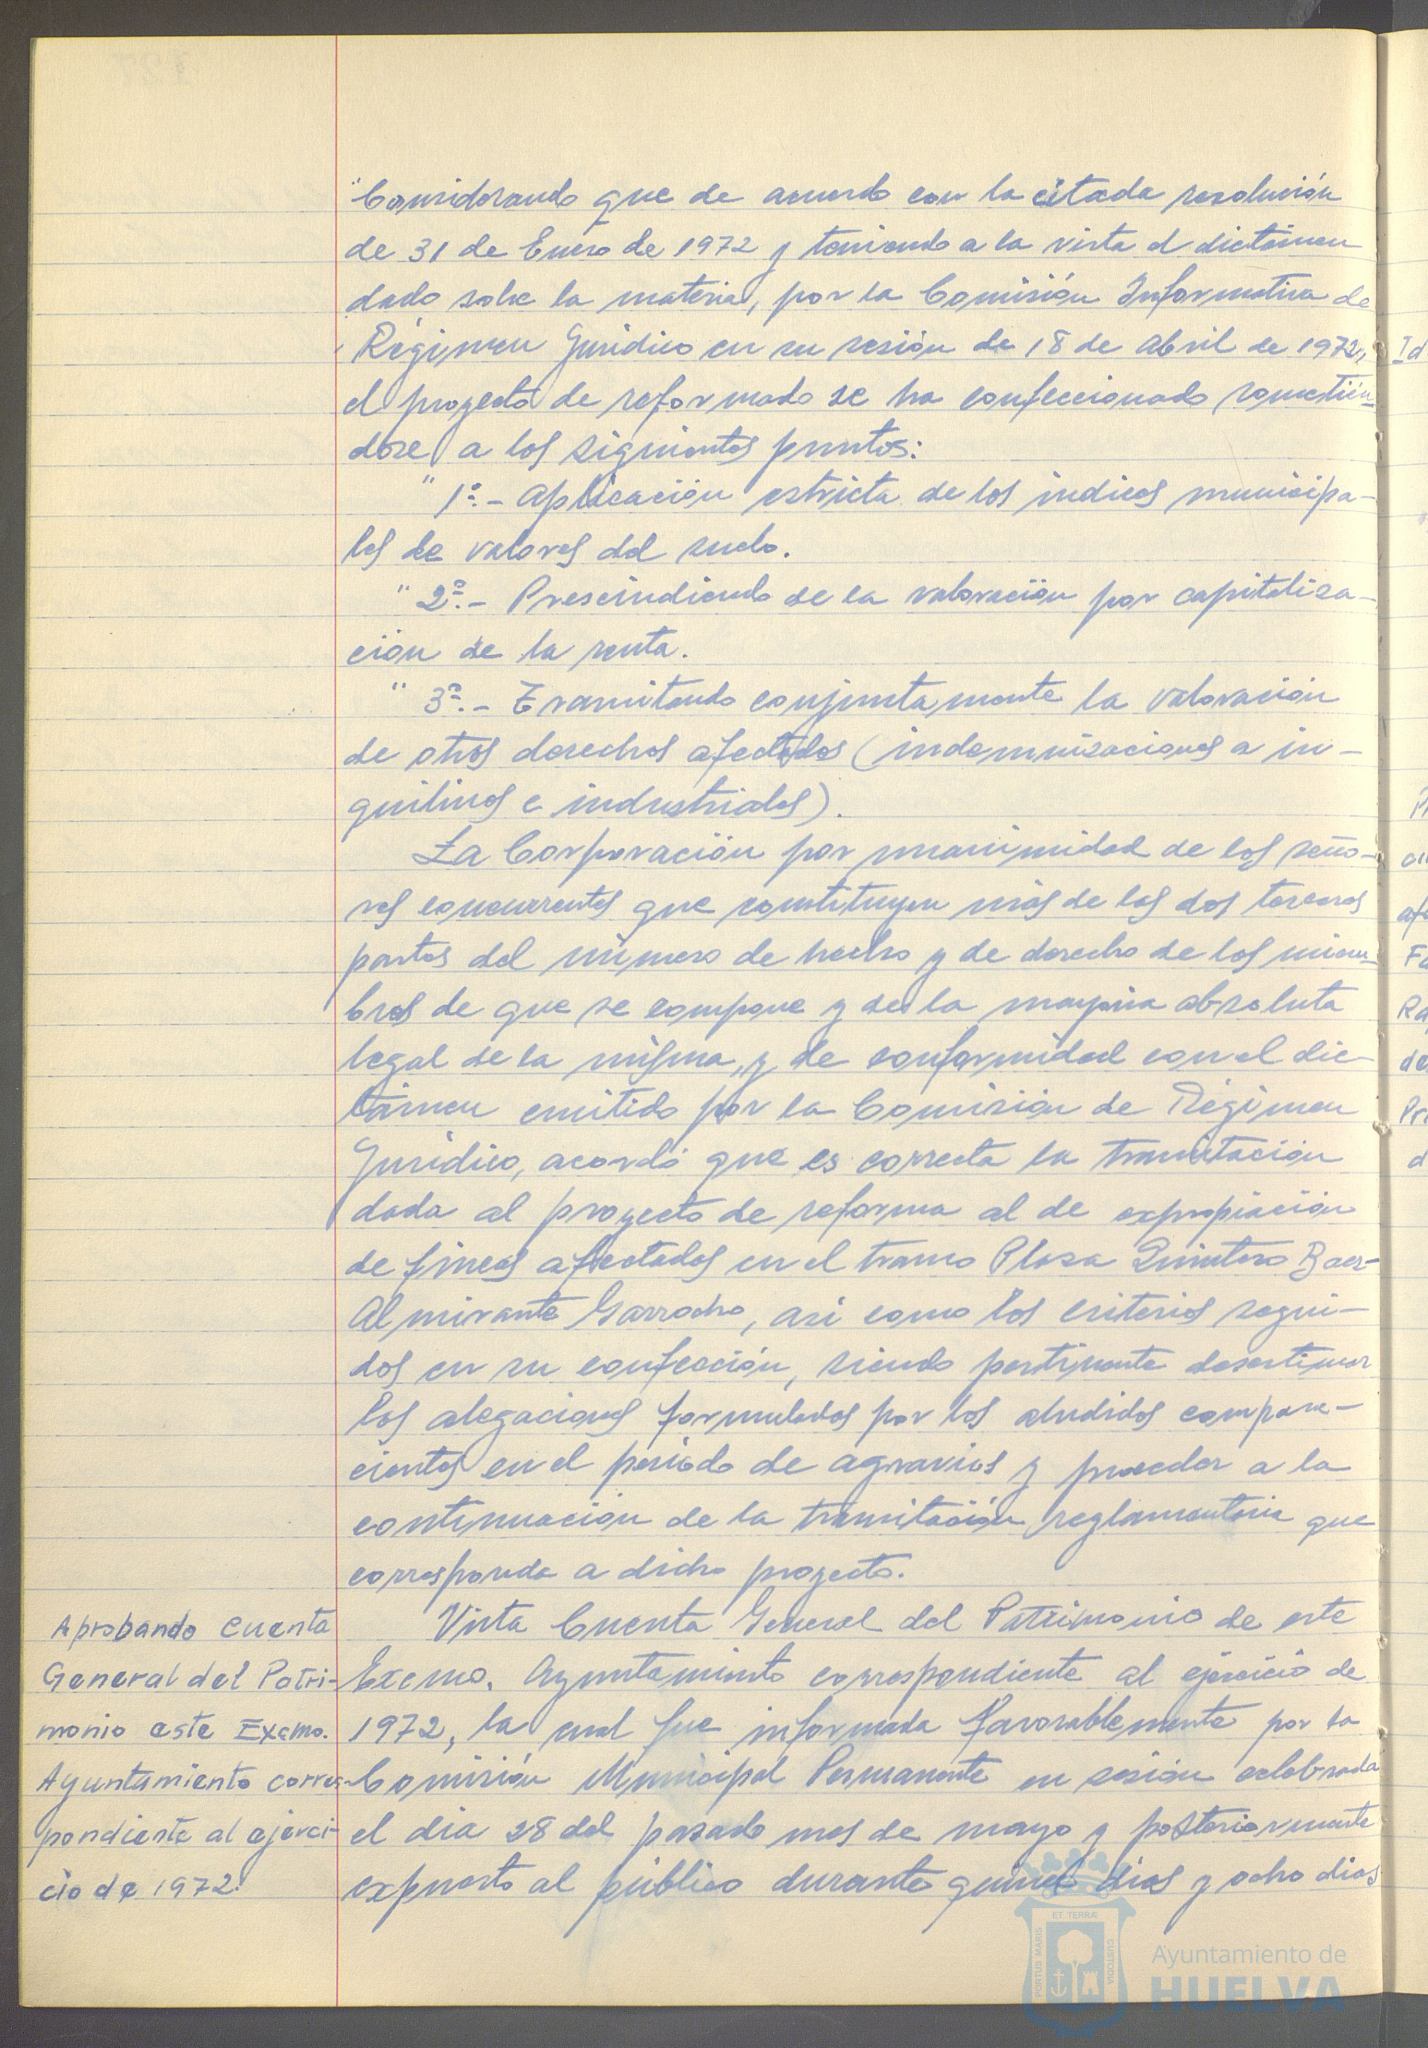 "Considerando que de acuerdo con la citada resolución
de 31 de Enero de 1972 y teniendo a la vista el dictámen
dado sobre la materia, por la Comisión Informativa de
Régimen Jurídico en su sesión de 18 de Abril de 1972,
el proyecto de reformado se ha confeccionado sometién-
dose a los siguientes puntos:
" 1º.- Aplicación estricta de los indices municipa-
les de valores del suelo.
" 2º.- Prescindiendo de la valoración por capitaliza-
ción de la renta.
" 3º.- Tramitando conjuntamente la valoración
de otros derechos afectados (indemnizaciones a in-
quilinos e industriales).
La Corporación por unanimidad de los seño-
res concurrentes que constituyen más de las dos terceras
partes del número de hecho y de derecho de los miem-
bros de que se compone y de la mayoria absoluta
legal de la misma, y de conformidad con el dic-
támen emitido por la Comisión de Régimen
Jurídico, acordó que es correcta la tramitación
dada al proyecto de reforma al de expropiación
de fincas afectadas en el tramo Plaza Quintero Baez-
Almirante Garrocho, así como los criterios segui-
dos en su confección, siendo pertinente desestimar
las alegaciones formuladas por los aludidos compare-
cientes en el periodo de agravios y proceder a la
continuación de la tramitación reglamentaria que
corresponda a dicho proyecto.
Aprobando Cuenta
General del Patri-
monio este Excmo.
Ayuntamiento corres-
pondiente al ejerci-
cio de 1972.
Vista Cuenta General del Patrimonio de este
Excmo. Ayuntamiento correspondiente al ejercicio de
1972, la cual fue informada favorablemente por la
Comisión Municipal Permanente en sesión celebrada
el dia 28 del pasado mes de mayo y posteriormente
expuesto al público durante quince dias y ocho dias
PORTUS MARIS
ET TERRÆ
CUSTODIA
Ayuntamiento de
HUELVA